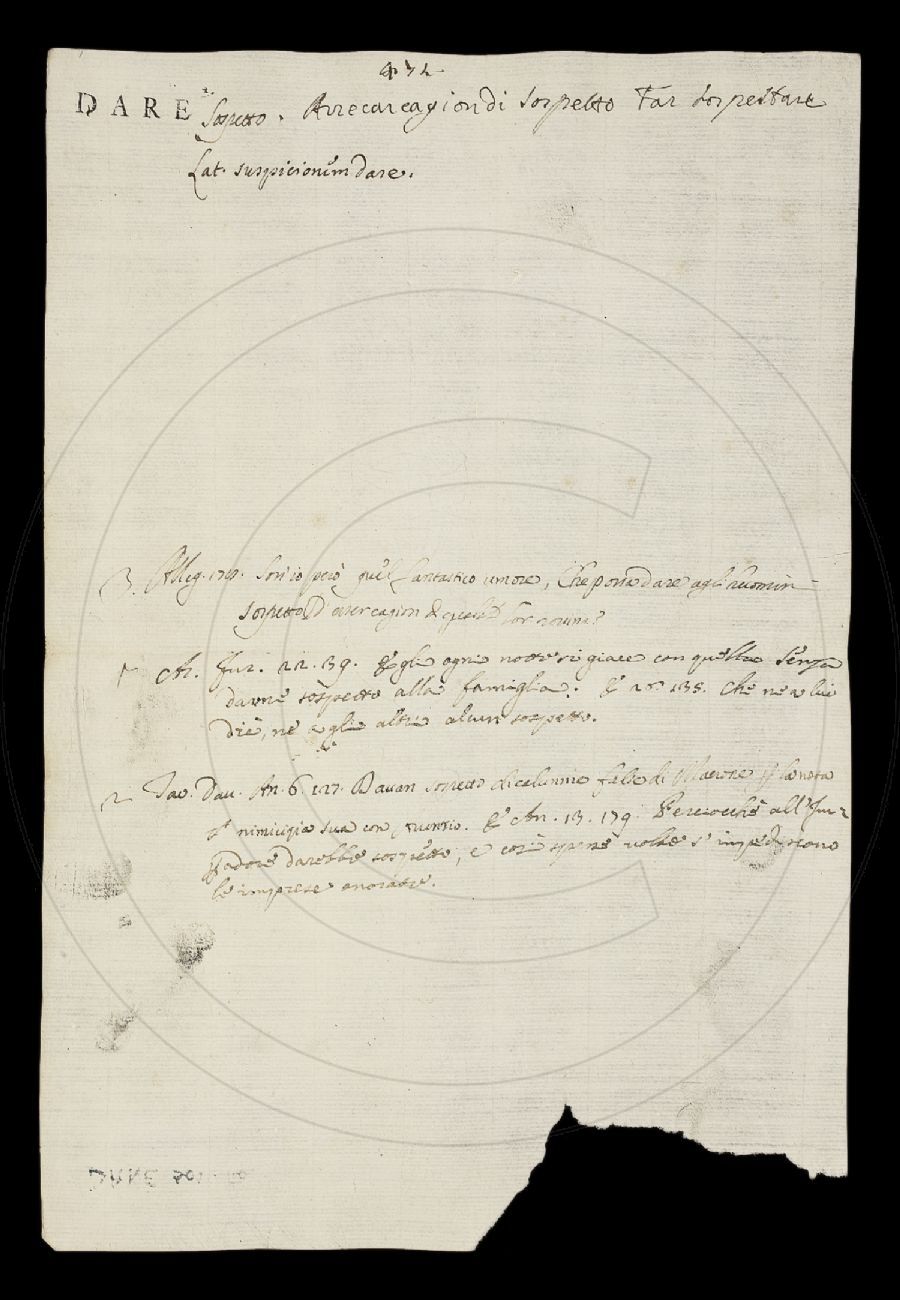 432
DARE Sospetto. Arrecar cagion di sospetto Far sospettare
Lat. suspicionem dare.
3. Alleg. 179. Son'io però quel fantastico umore, Che possa dare agl'huomin
sospetto D'aver cagion di lor rovine?
1 Ar. Fur. 22. 39. Egli ogni notte si giace con quella Senza
darne sospetto alla famiglia. E 26. 135. Che nè a lui
diè, nè agli altri alcun sospetto.
2 Tac. Dav. An. 6. 127. Davan sospetto di calunnie false di Macrone p la nota
nimicizia sua con Arunzio. E An. 13. 179. Perciocchè all'Im-
padore darebbe sospetto, e così spesse volte s'impediscono
le imprese onorate.
DARE